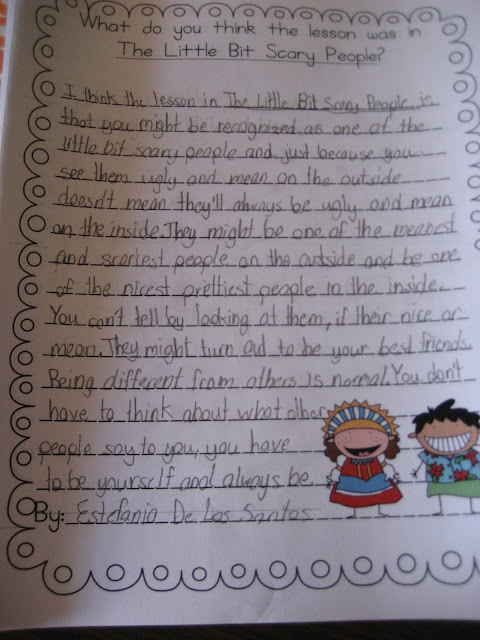 What do you think the lesson was in
The Little Bit Scary People?
I think the lesson in The Little Bit Scary People is
that you might be recognized as one of the
little bit scary people and just because you
see them ugly and mean on the outside
doesn't mean they'll always be ugly and mean
on the inside. They might be one of the meanest
and scariest people on the outside and be one
of the nicest prettiest people in the inside.
You can't tell by looking at them, if their nice or
mean. They might turn out to be your best friends.
Being different from others is normal. You don't
have to think about what other
people say to you, you have
to be yourself and always be.
By: Estefania De Los Santos